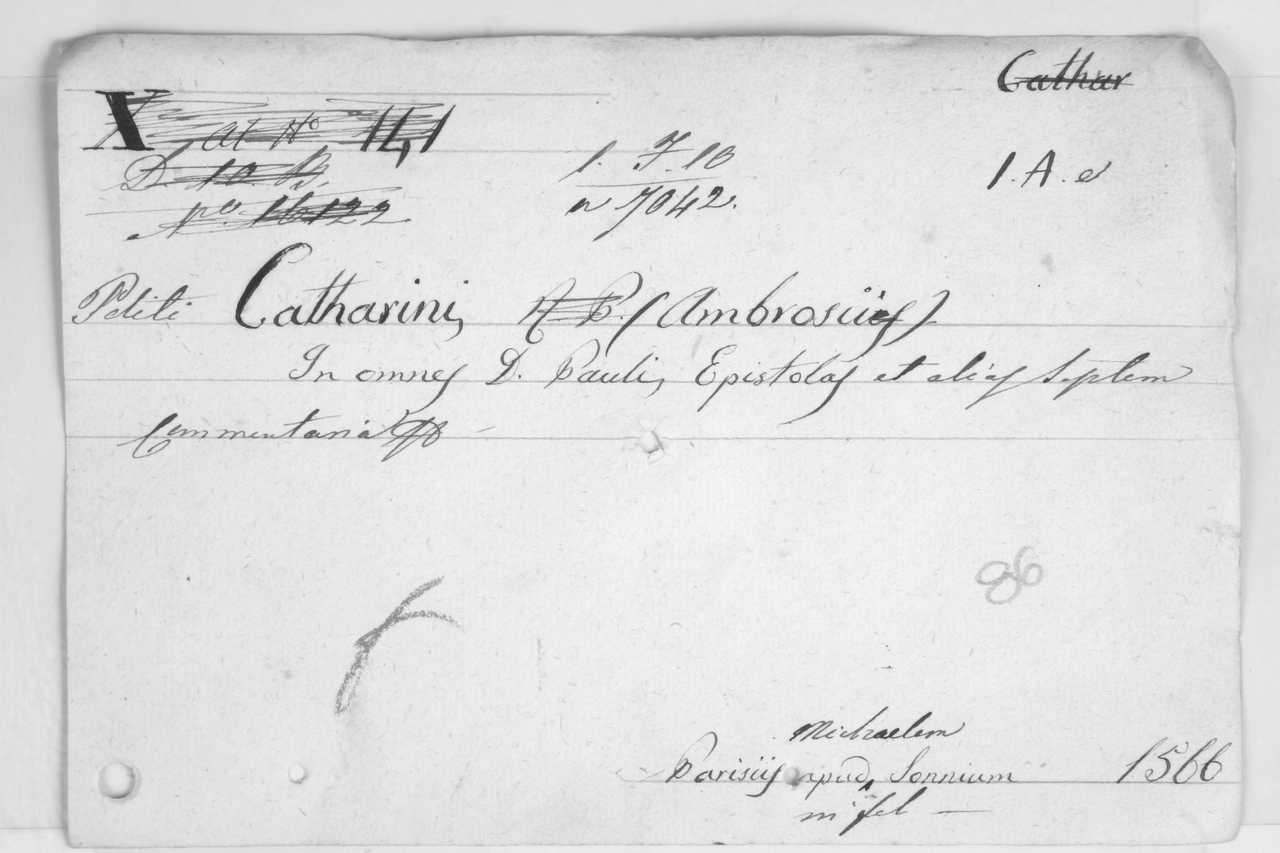 Cathar
X at No 141
D. 10. B.
No. 16122.
1. F. 10
n 7042.
1. A. e
Politi Catharini, R. P. (Ambrosii)
In omnes D. Pauli, Epistolas et alias septem
Commentaria
86
Michaelem
Parisiis apud Sonnium 1566
in fol —